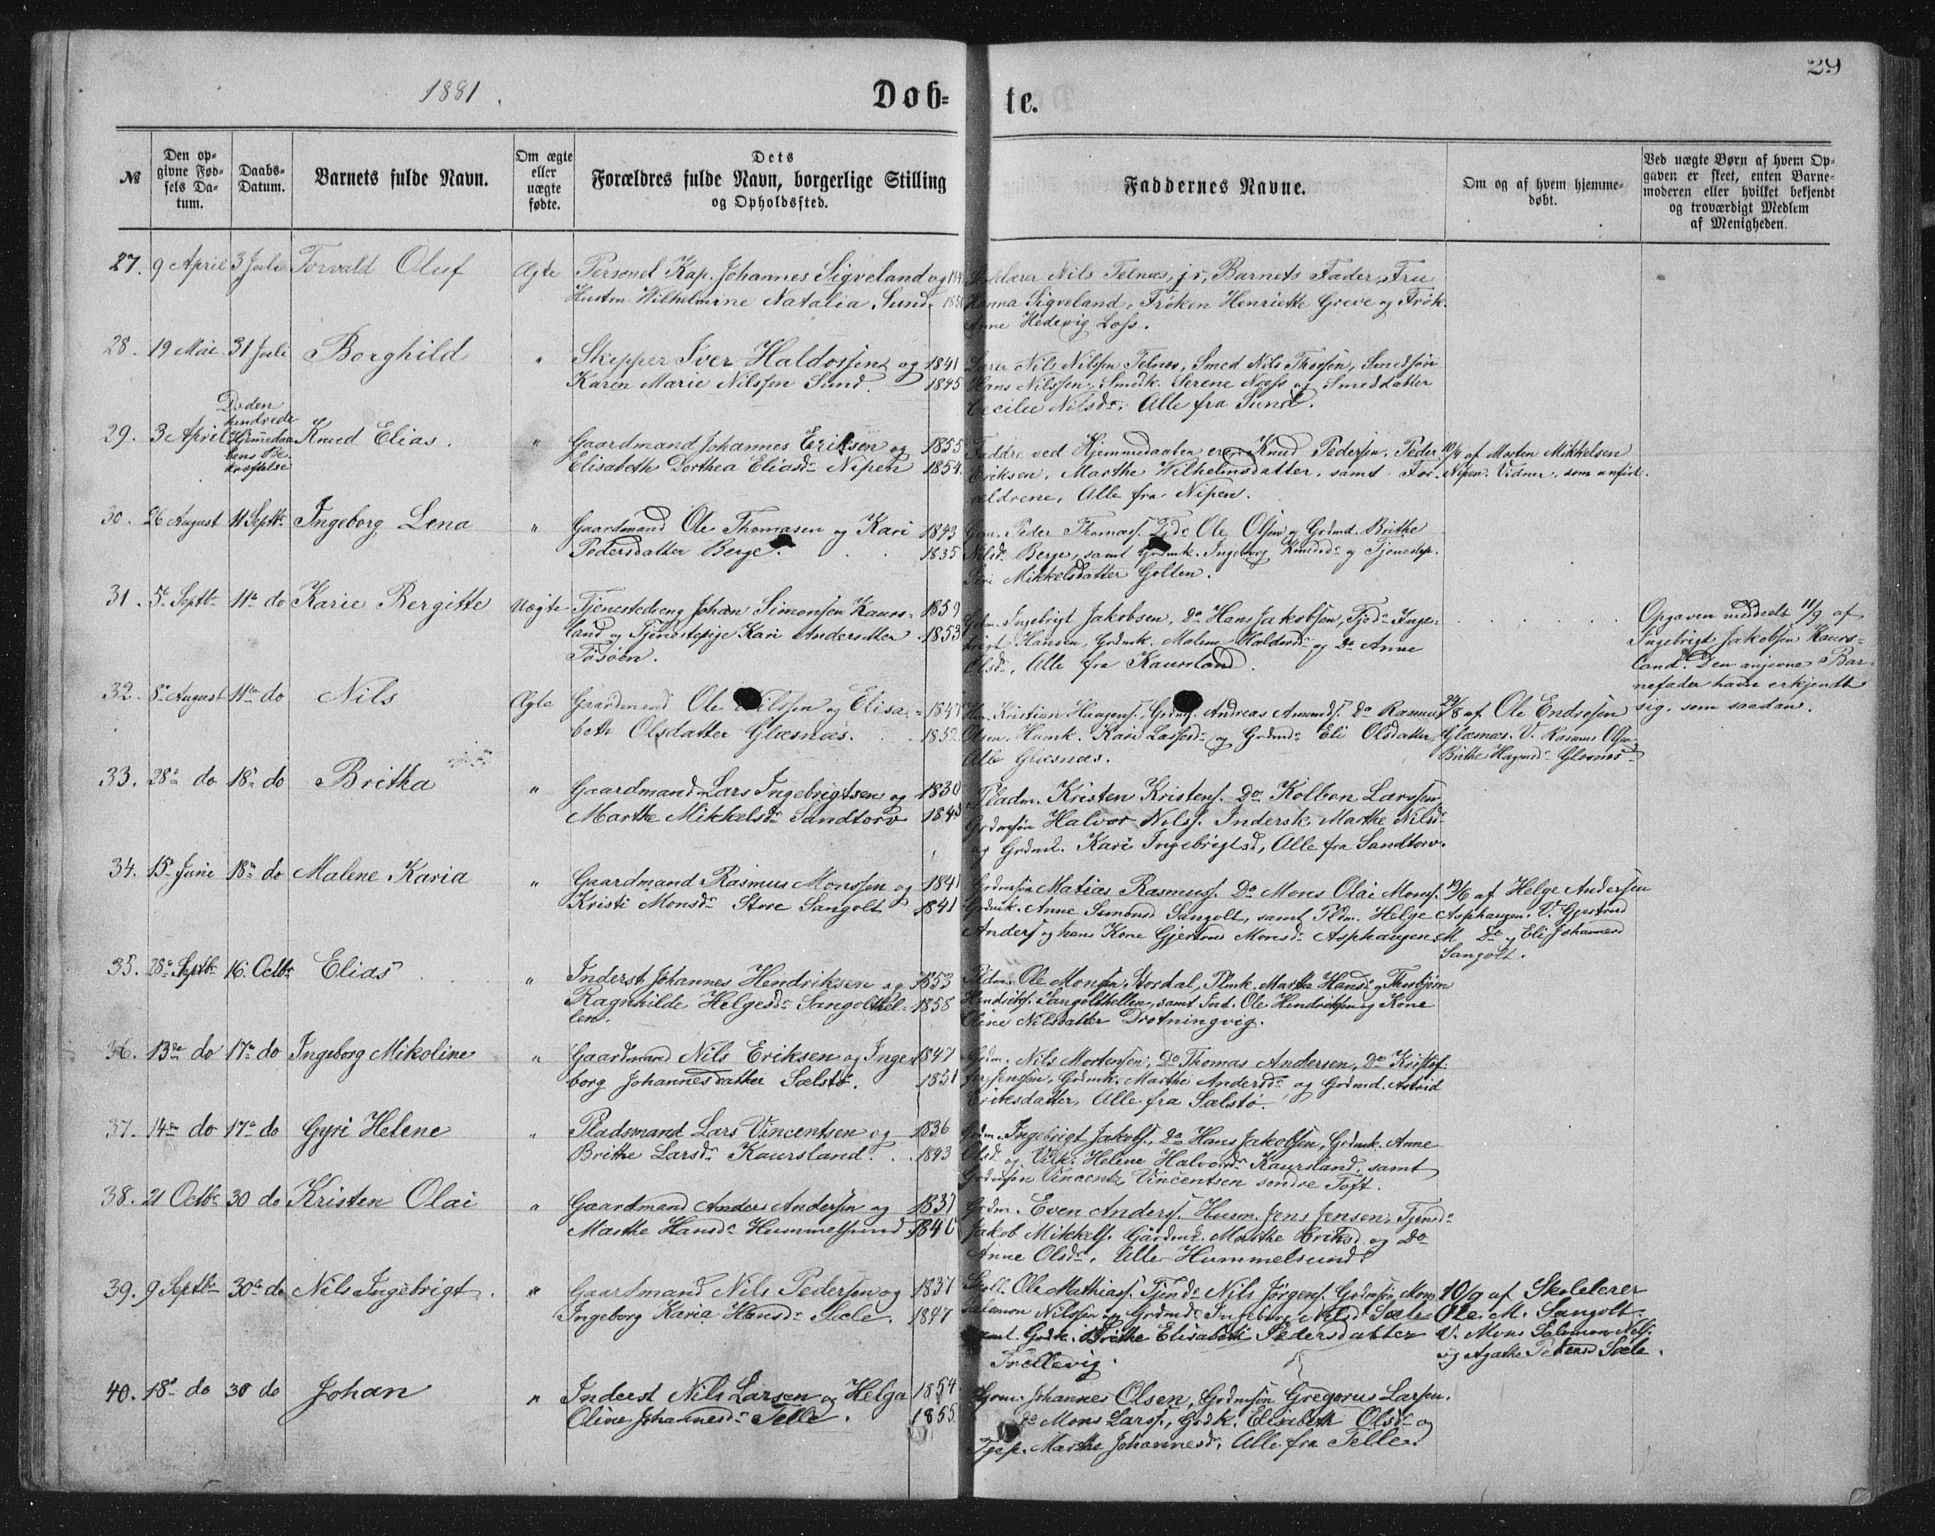 29
1881.
Døb-
te.
№
Den op-
givne Fød-
sels Da-
tum.
Daabs-
Datum.
Barnets fulde Navn.
Om ægte
eller
uægte
fødte.
Dets
Forældres fulde Navn, borgerlige Stilling
og Opholdssted.
Faddernes Navne.
Om og af hvem hjemme-
døbt.
Ved uægte Børn af hvem Op-
gaven er skeet, enten Barne-
moderen eller hvilket bekjendt
og troværdigt Medlem
af Menigheden.
27. 9 April 3 Juli Torvald Oluf Ægte Personel Kap. Johannes Sigveland og
Hustru Wilhelmine Natalia Sund.
Nils Telnæs, jr, Barnets Fader, Fru
Hanna Sigveland, Frøken Henriette Greve og Frøk.
Anne Hedevig Loss.
28. 19 Mai 31 Juli Borghild " Skipper Iver Haldorssen og 1841
Karen Marie Nilssen Sund. 1845
Lærer Nils Nilssen Telnæs, Smed Nils Smedsøn
Hans Nilssen, Smedk. Serene Næss og Smeddatter
Cecilie Nilsdr, Alle fra Sund.
29. 3 April Knud Elias. " Gaardmand Johannes Eriksen og 1855
Elisabeth Dorthea Eliasdr Nipen 1854.
Faddre ved Hjemmedaaben ere: Knud Pedersen, Peder
Eriksen, Marthe Wilhelmsdatter, samt For-
ældrene, Alle fra Nipen.
af Morten Mikkelsen
Nipen. Vidner, som anført.
30. 26 August 11 Septbr Ingeborg Lena " Gaardmand Ole Thomasen og Kari 1843
Pedersdatter Berge. 1835
Peder Thomass. Ole Olsen og Grdmd. Brithe
Nilsdr Berge, samt Grdmk. Ingeborg Knudsdr og Tjenestep.
Siri Mikkelsdatter Golten.
31. 5te Septbr 11te do Karie Bergitte Uægte Tjenestedreng Johan Simonsen Kaurs- 1859
land og Tjenestepige Kari Andersdtter 1853
Tøsøen.
Grdm. Ingebrigt Jakobsen, Do Hans Jakobsen, Tjd. Inge-
brigt Hansen, Grdmk. Malene Haldorsdr og Do Anne
Olsdr, Alle fra Kaursland.
Opgaven meddeelt 11/9 af
Ingebrigt Jakobsen Kaurs-
land. Den angivne Bar-
nefader havde erkjendt
sig, som saadan.
32. 8de August 11te do Nils Ægte Gaardmand Ole Nilssen og Elisa- 1847
beth Olsdatter Glæsnæs. 1852
Kristian Haagens., Andreas Amunds. Do Rasmus
Olsen, Husmk. Kari Lassesdr og Grdmdr Eli Olsdatter
Alle Glæsnæs.
af Ole Endresen
Glæsnæs. V. Rasmus Olsen
Brithe Glæsnæs
33. 28de do 18de do Britha " Gaardmand Lars Ingebrigtsen og 1830
Marthe Mikkelsdr Sandtorv
Pladm. Kristen Kristens. Do Kolben Larssen,
Grdmsøn Halvor Nilss. Indersk. Marthe Nilsdr
og Grdmd. Kari Ingebrigtsd., Alle fra Sandtorv.
34. 15de Juni 18de do Malene Karia " Gaardmand Rasmus Monssen og 1841
Kristi Monsdr Store Sangolt 1841
Grdmsøn Matias Rasmuss. Do Mons Olai Mons.
Grdmk. Anne Simonsd Sangolt, samt Pldm. Helge
Anders og hans Kone Gjertrud Monsdr Asphaugen.
19/6 af Helge Andersen
Asphaugen. V. Gjertrud
M Do og Eli Johannesd
Sangolt.
35. 28de Septbr 16 Octbr Elias " Inderst Johannes Hendriksen og 1853
Ragnhilde Helgesdr Sangolthel- 1858
len.
Pldm. Ole Monsen Stordal, Plmk. Marthe Hansd og Thorbjørn
Hendriks. Sangolthellen, samt Ind. Ole Hendriksen og Kone
Oline Nilsdatter Drotningvig.
36. 13de do 17de do Ingeborg Mikoline " Gaardmand Nils Eriksen og Inge- 1847
borg Johannesdatter Sælstø. 1851
Grdm. Nils Mortensen, Do Thomas Andersen, Do Kristof-
fer Jenssen, Grdmk. Marthe Andersdr og Grdmd. Astrid
Eriksdatter, Alle fra Sælstø.
37. 14de do 17de do Gyri Helene " Pladsmand Lars Vincentsen og 1836
Brithe Larsdr Kaursland. 1843
Grdm. Ingebrigt Jakobs., Do Hans Jakobsen, Grdmk. Anne
Olsd og Helene Halvorsdr Kaursland, samt
Grdmsøn Vincentz Vincentsen søndre Toft.
38. 21 Octbr 30 do Kristen Olai " Gaardmand Anders Andersen og 1837
Marthe Hansdr Hummelsund. 1846
Grdm. Even Anders. Husm. Jens Jensen, Tjensd.
Jakob Mikkels. Gardmk. Marthe Eriksd. og Do
Anne Olsdr, Alle Hummelsund.
39. 9 Septbr 30te do Nils Ingebrigt. " Gaardmand Nils Pedersen og 1837
Ingeborg Karia Hansdr Sæle. 1847
Ole Mathiass. Nils Jørgens. Grdmsøn Mons
Salamon Nilssen og Grdmd. Ingeborg Nilsd Sæle
samt Grdk. Brithe Elisabeth Pedersdatter
Trellevig.
10/9 af Skolelerer
Ole M. Sangolt.
V. Mons Salamon Nils.
og Agathe Pedersd Sæle.
40. 18de do 30 do Johan " Inderst Nils Larsen og Helga 1854
Oline Johannesdr Telle. 1855
Grdm. Johannes Olsen, Grdmsøn Gregorius Larsen.
Do Mons Larss., Grdk. Elisabeth Olsdr og
Tjep. Marthe Johannesd., Alle fra Telle.